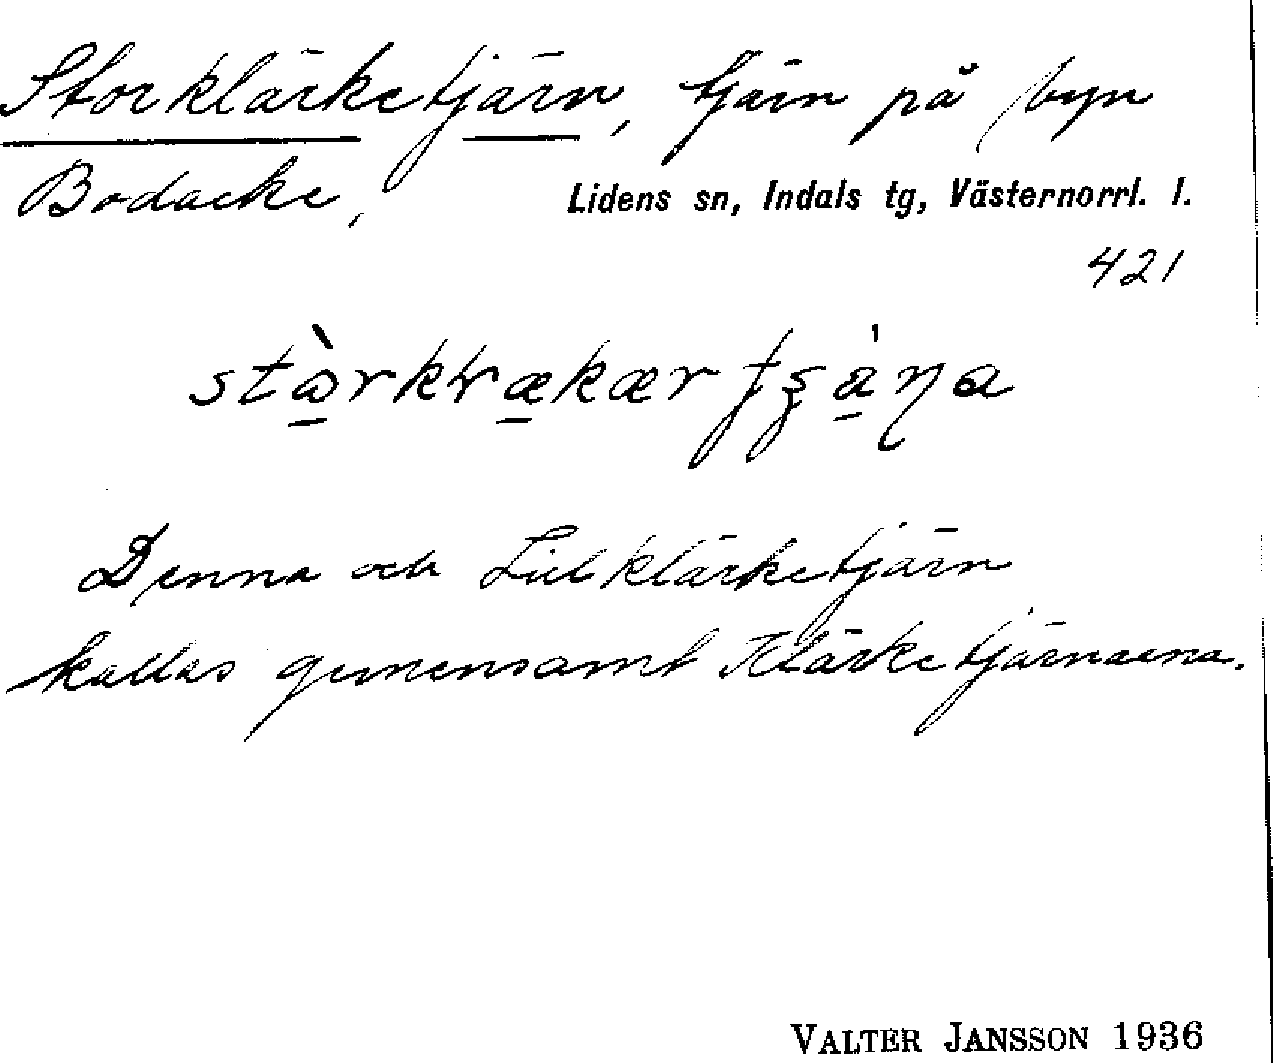 Storklärketjärn, tjärn på byn
Bodacke,
Lidens sn, Indals tg, Västernorrl. l.
421
Denna och Lillklärketjärn
kallas gemensamt Klärketjärnarna.
VALTER JANSSON 1936